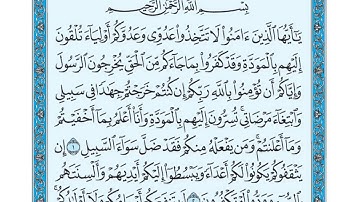 بِسْمِ اللَّهِ الرَّحْمَٰنِ الرَّحِيمِ
يَٰٓأَيُّهَا الَّذِينَ ءَامَنُوا لَا تَتَّخِذُوا عَدُوِّي وَعَدُوَّكُمْ أَوْلِيَآءَ تُلْقُونَ
إِلَيْهِم بِالْمَوَدَّةِ وَقَدْ كَفَرُوا بِمَا جَآءَكُم مِّنَ الْحَقِّ يُخْرِجُونَ الرَّسُولَ
وَإِيَّاكُمْ أَن تُؤْمِنُوا بِاللَّهِ رَبِّكُمْ إِن كُنتُمْ خَرَجْتُمْ جِهَٰدًا فِي سَبِيلِي
وَابْتِغَآءَ مَرْضَاتِي تُسِرُّونَ إِلَيْهِم بِالْمَوَدَّةِ وَأَنَا۠ أَعْلَمُ بِمَآ أَخْفَيْتُمْ
وَمَآ أَعْلَنتُمْ وَمَن يَفْعَلْهُ مِنكُمْ فَقَدْ ضَلَّ سَوَآءَ السَّبِيلِ ١ إِن
يَثْقَفُوكُمْ يَكُونُوا لَكُمْ أَعْدَآءً وَيَبْسُطُوٓا إِلَيْكُمْ أَيْدِيَهُمْ وَأَلْسِنَتَهُم